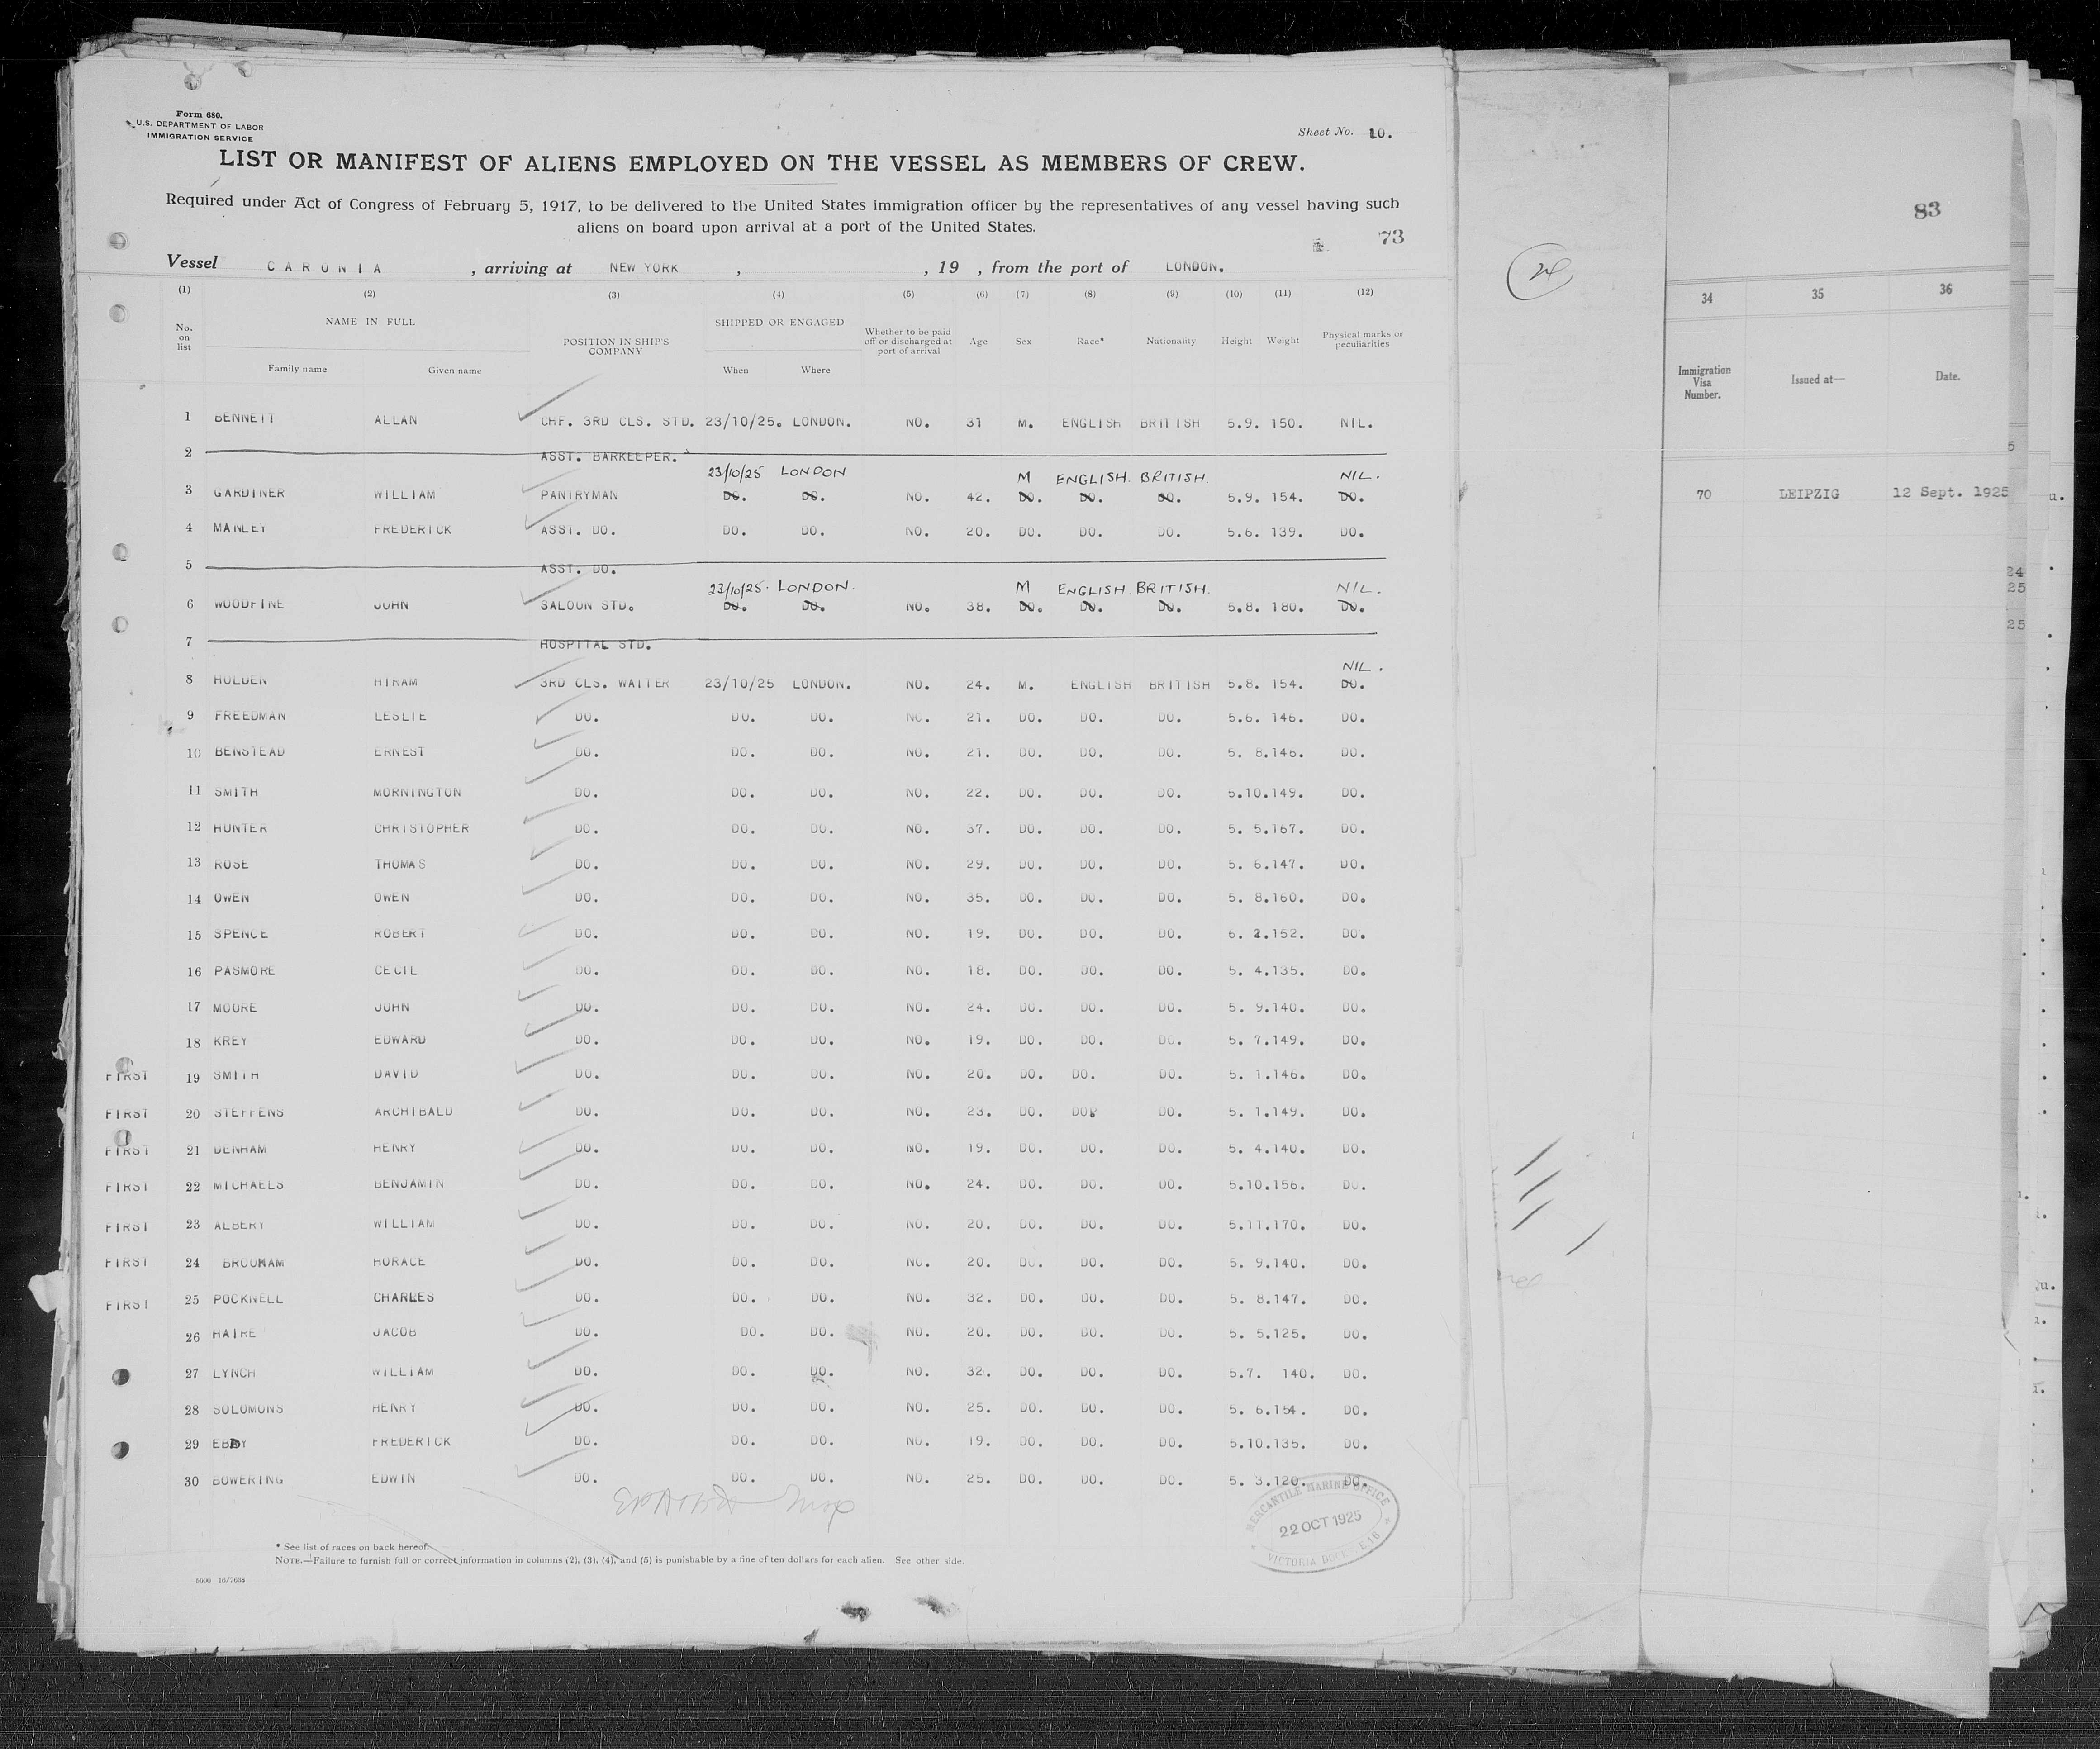 Form 680.
U.S. DEPARTMENT OF LABOR
IMMIGRATION SERVICE
Sheet No. 10.
LIST OR MANIFEST OF ALIENS EMPLOYED ON THE VESSEL AS MEMBERS OF CREW.
Required under Act of Congress of February 5, 1917, to be delivered to the United States immigration officer by the representatives of any vessel having such
aliens on board upon arrival at a port of the United States.
73
Vessel CARONIA , arriving at NEW YORK , , 19 , from the port of LONDON.
(1) (2) (3) (4) (5) (6) (7) (8) (9) (10) (11) (12)
No. on list NAME IN FULL POSITION IN SHIP'S COMPANY SHIPPED OR ENGAGED Whether to be paid off or discharged at port of arrival Age Sex Race* Nationality Height Weight Physical marks or peculiarities
Family name Given name When Where
1 BENNETT ALLAN CHF. 3RD CLS. STD. 23/10/25. LONDON. NO. 31 M. ENGLISH BRITISH 5.9. 150. NIL.
2 ASST. BARKEEPER.
23/10/25 LONDON M ENGLISH. BRITISH. NIL.
3 GARDINER WILLIAM PANTRYMAN DO. DO. NO. 42. DO. DO. DO. 5.9. 154. DO.
4 MANLEY FREDERICK ASST. DO. DO. DO. NO. 20. DO. DO. DO. 5.6. 139. DO.
5 ASST. DO.
23/10/25. LONDON. M ENGLISH. BRITISH. NIL.
6 WOODFINE JOHN SALOON STD. DO. DO. NO. 38. DO. DO. DO. 5.8. 180. DO.
7 HOSPITAL STD.
NIL.
8 HOLDEN HIRAM 3RD CLS. WAITER 23/10/25 LONDON. NO. 24. M. ENGLISH BRITISH 5.8. 154. DO.
9 FREEDMAN LESLIE DO. DO. DO. NO. 21. DO. DO. DO. 5.6. 146. DO.
10 BENSTEAD ERNEST DO. DO. DO. NO. 21. DO. DO. DO. 5. 8.146. DO.
11 SMITH MORNINGTON DO. DO. DO. NO. 22. DO. DO. DO. 5.10.149. DO.
12 HUNTER CHRISTOPHER DO. DO. DO. NO. 37. DO. DO. DO. 5. 5.167. DO.
13 ROSE THOMAS DO. DO. DO. NO. 29. DO. DO. DO. 5. 6.147. DO.
14 OWEN OWEN DO. DO. DO. NO. 35. DO. DO. DO. 5. 8.160. DO.
15 SPENCE ROBERT DO. DO. DO. NO. 19. DO. DO. DO. 6. 2.152. DO.
16 PASMORE CECIL DO. DO. DO. NO. 18. DO. DO. DO. 5. 4.135. DO.
17 MOORE JOHN DO. DO. DO. NO. 24. DO. DO. DO. 5. 9.140. DO.
18 KREY EDWARD DO. DO. DO. NO. 19. DO. DO. DO. 5. 7.149. DO.
FIRST 19 SMITH DAVID DO. DO. DO. NO. 20. DO. DO. DO. 5. 1.146. DO.
FIRST 20 STEFFENS ARCHIBALD DO. DO. DO. NO. 23. DO. DO. DO. 5. 1.149. DO.
FIRST 21 DENHAM HENRY DO. DO. DO. NO. 19. DO. DO. DO. 5. 4.140. DO.
FIRST 22 MICHAELS BENJAMIN DO. DO. DO. NO. 24. DO. DO. DO. 5.10.156. DO.
FIRST 23 ALBERY WILLIAM DO. DO. DO. NO. 20. DO. DO. DO. 5.11.170. DO.
FIRST 24 BROOMAM HORACE DO. DO. DO. NO. 20. DO. DO. DO. 5. 9.140. DO.
FIRST 25 POCKNELL CHARLES DO. DO. DO. NO. 32. DO. DO. DO. 5. 8.147. DO.
26 HAIRE JACOB DO. DO. DO. NO. 20. DO. DO. DO. 5. 5.125. DO.
27 LYNCH WILLIAM DO. DO. DO. NO. 32. DO. DO. DO. 5.7. 140. DO.
28 SOLOMONS HENRY DO. DO. DO. NO. 25. DO. DO. DO. 5. 6.154. DO.
29 EBDY FREDERICK DO. DO. DO. NO. 19. DO. DO. DO. 5.10.135. DO.
30 BOWERING EDWIN DO. DO. DO. NO. 25. DO. DO. DO. 5. 3.120. DO.
MERCANTILE MARINE OFFICE
22 OCT 1925
VICTORIA DOCK. E 16
* See list of races on back hereof.
NOTE.—Failure to furnish full or correct information in columns (2), (3), (4), and (5) is punishable by a fine of ten dollars for each alien. See other side.
5000 16/7638
83
34 35 36
Immigration Visa Number. Issued at— Date.
70 LEIPZIG 12 Sept. 1925
5
24
25
25